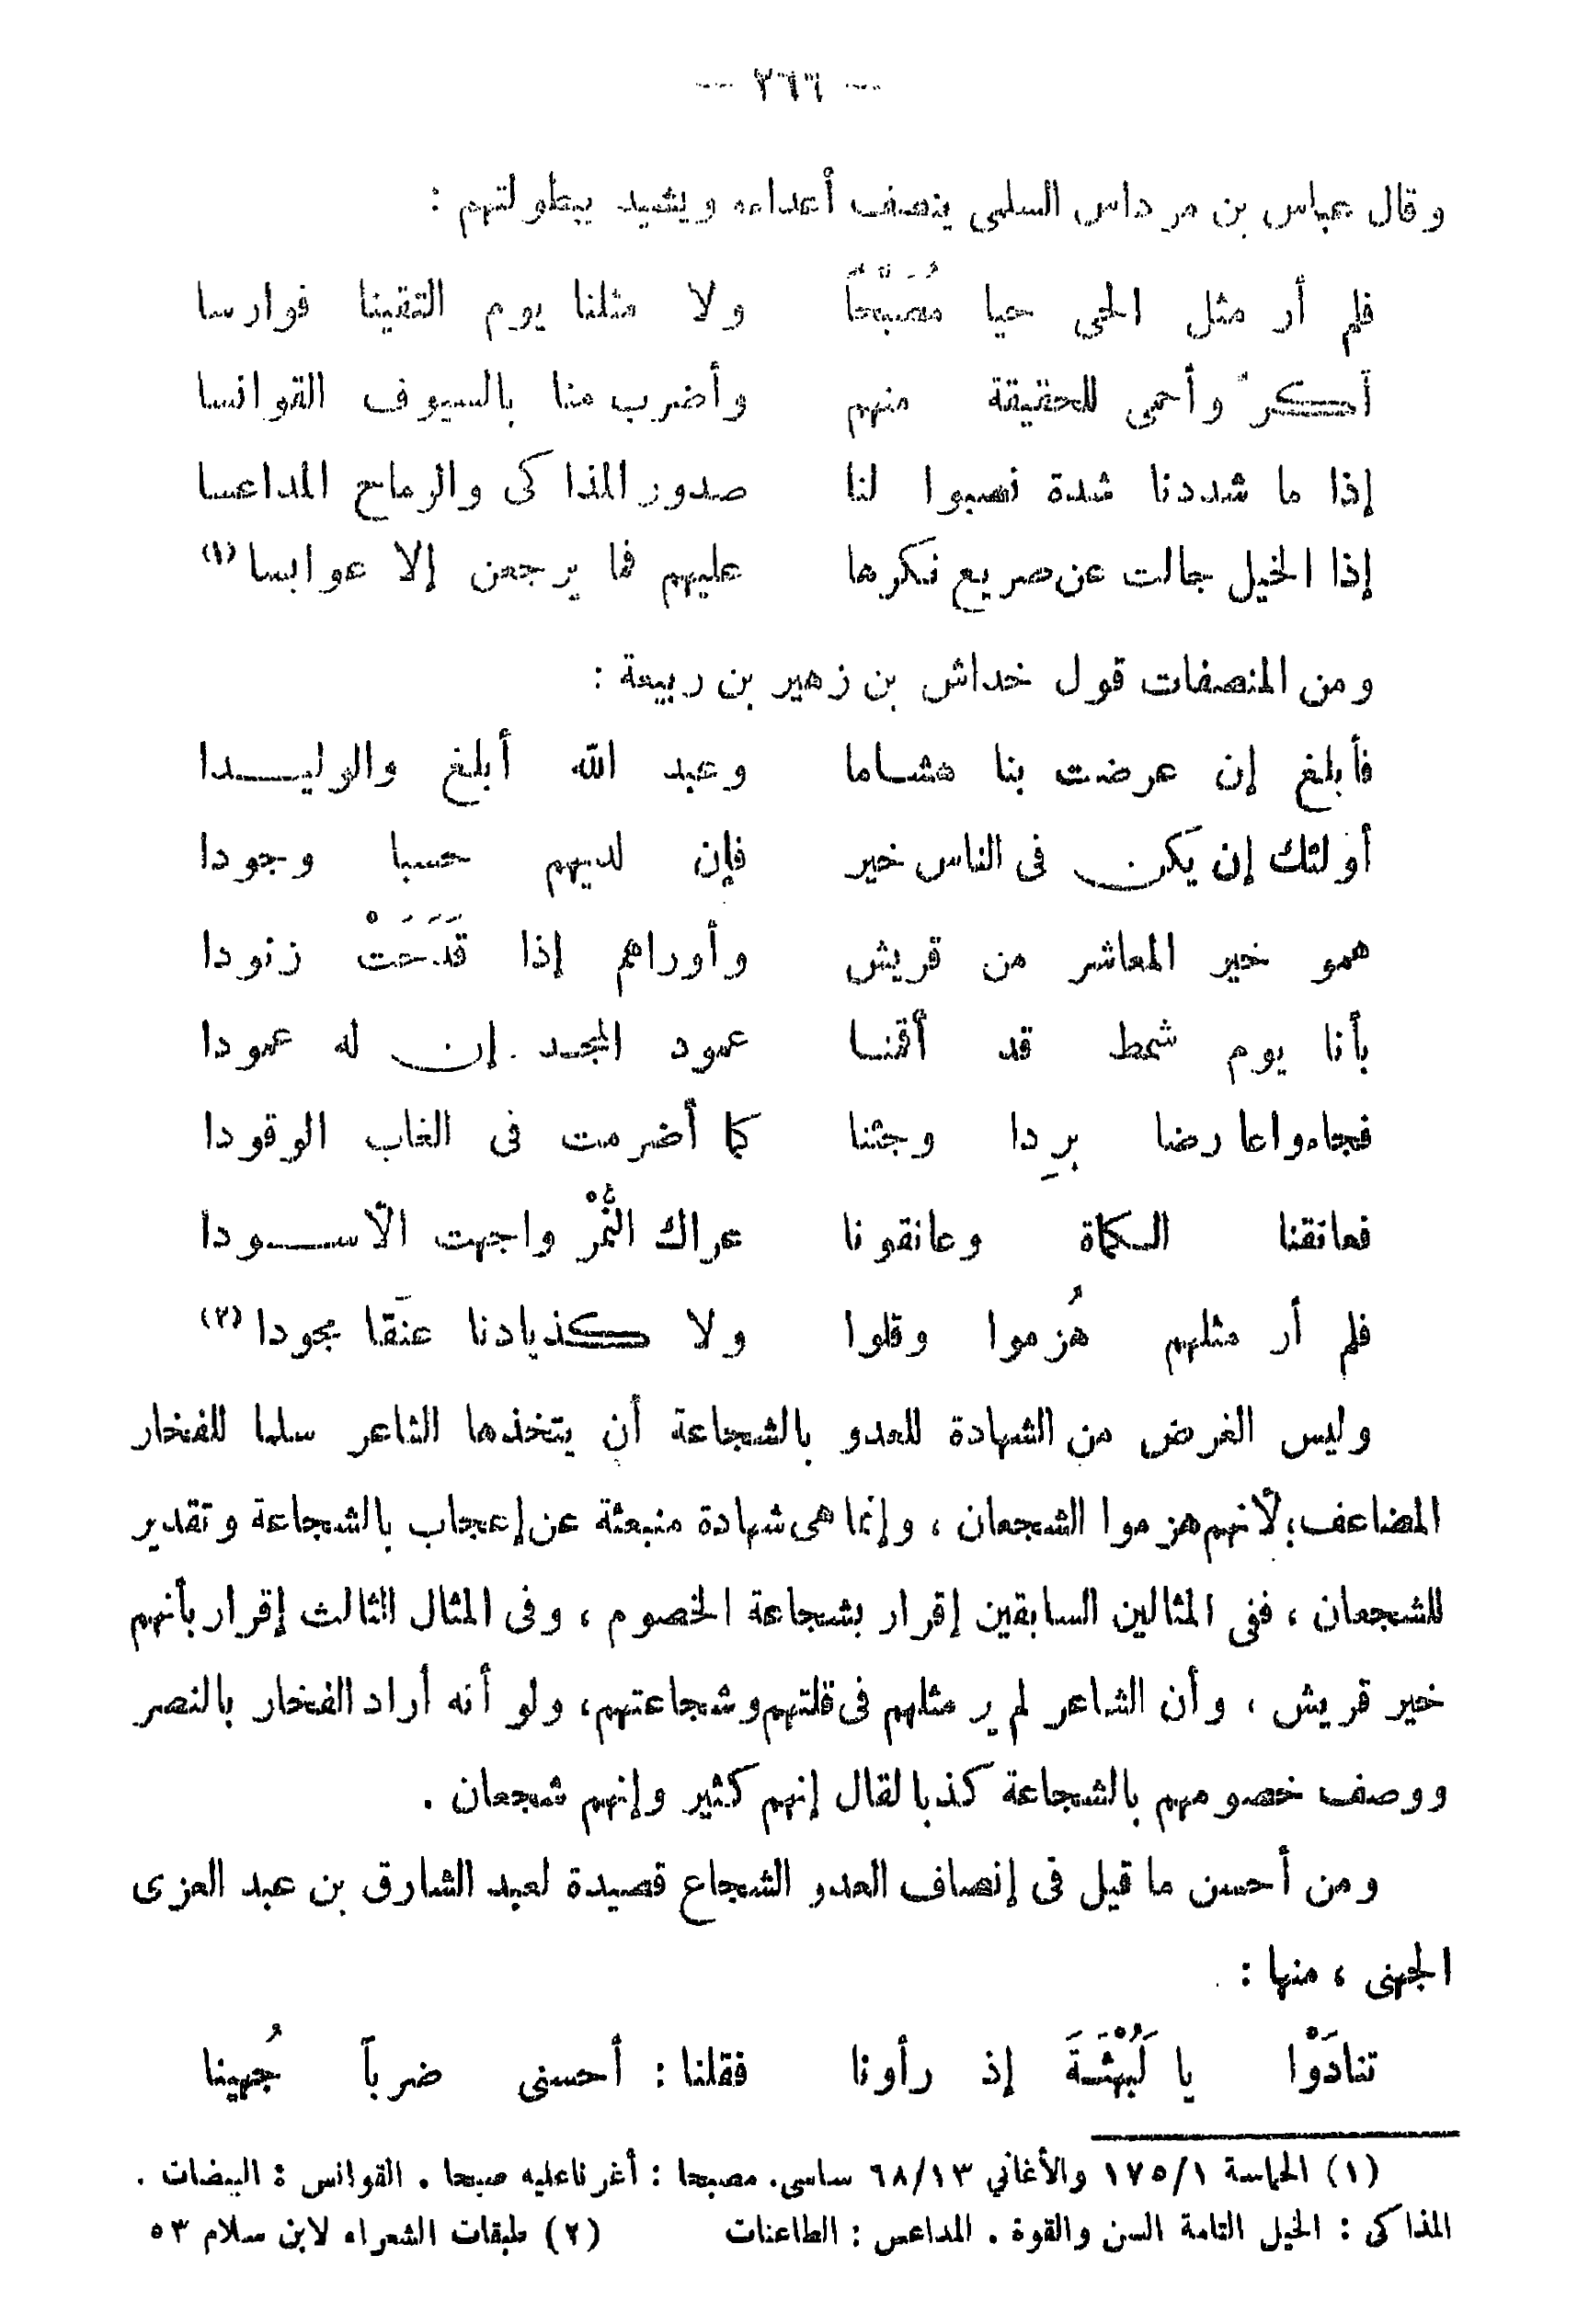 — ٢٦٦ —
وقال عباس بن مرداس السلمى ينصف أعداءه ويشيد ببطولتهم :
فلم أر مثل الحى حيا مُصَبَّحاً ولا مثلنا يوم التقينا فوارسا
أكرّ وأحمى للحقيقة منهم وأضرب منا بالسيوف القوانسا
إذا ما شددنا شدة نصبوا لنا صدور المذاكى والرماح المداعسا
إذا الخيل جالت عن صريع نكرها عليهم فما يرجعن إلا عوابسا (١)
ومن المنصفات قول خداش بن زهير بن ربيعة :
فأبلغ إن عرضت بنا هشاما وعبد الله أبلغ والوليدا
أولئك إن يكن فى الناس خير فإن لديهم حسبا وجودا
همو خير المعاشر من قريش وأوراهم إذا قَدَحَتْ زنودا
بأنا يوم شمط قد أقمنا عمود المجد إن له عمودا
فجاءوا عارضا بردا وجئنا كما أضرمت فى الغاب الوقودا
فعانقنا الكماة وعانقونا عراك النُّمْر واجهت الأسودا
فلم أر مثلهم هُزموا وقلوا ولا كذيادنا عنَقا مجودا (٢)
وليس الغرض من الشهادة للعدو بالشجاعة أن يتخذها الشاعر سلما للفخار
المضاعف؛ لأنهم هزموا الشجعان ، وإنما هى شهادة منبعثة عن إعجاب بالشجاعة وتقدير
للشجعان ، ففى المثالين السابقين إقرار بشجاعة الخصوم ، وفى المثال الثالث إقرار بأنهم
خير قريش ، وأن الشاعر لم ير مثلهم فى قلتهم وشجاعتهم، ولو أنه أراد الفخار بالنصر
ووصف خصومهم بالشجاعة كذبا لقال إنهم كثير وإنهم شجعان .
ومن أحسن ما قيل فى إنصاف العدو الشجاع قصيدة لعبد الشارق بن عبد العزى
الجهنى ، منها :
تنادَوْا يا لَبُهْثَةَ إذ رأونا فقلنا : أحسنى ضرباً جُهينا
(١) الحماسة ١٧٥/١ والأغاني ٦٨/١٣ ساسى. مصبحا : أغرنا عليه صبحا . القوانس : البيضات .
المذاكى : الخيل التامة السن والقوة . المداعس : الطاعنات (٢) طبقات الشعراء لابن سلام ٥٣